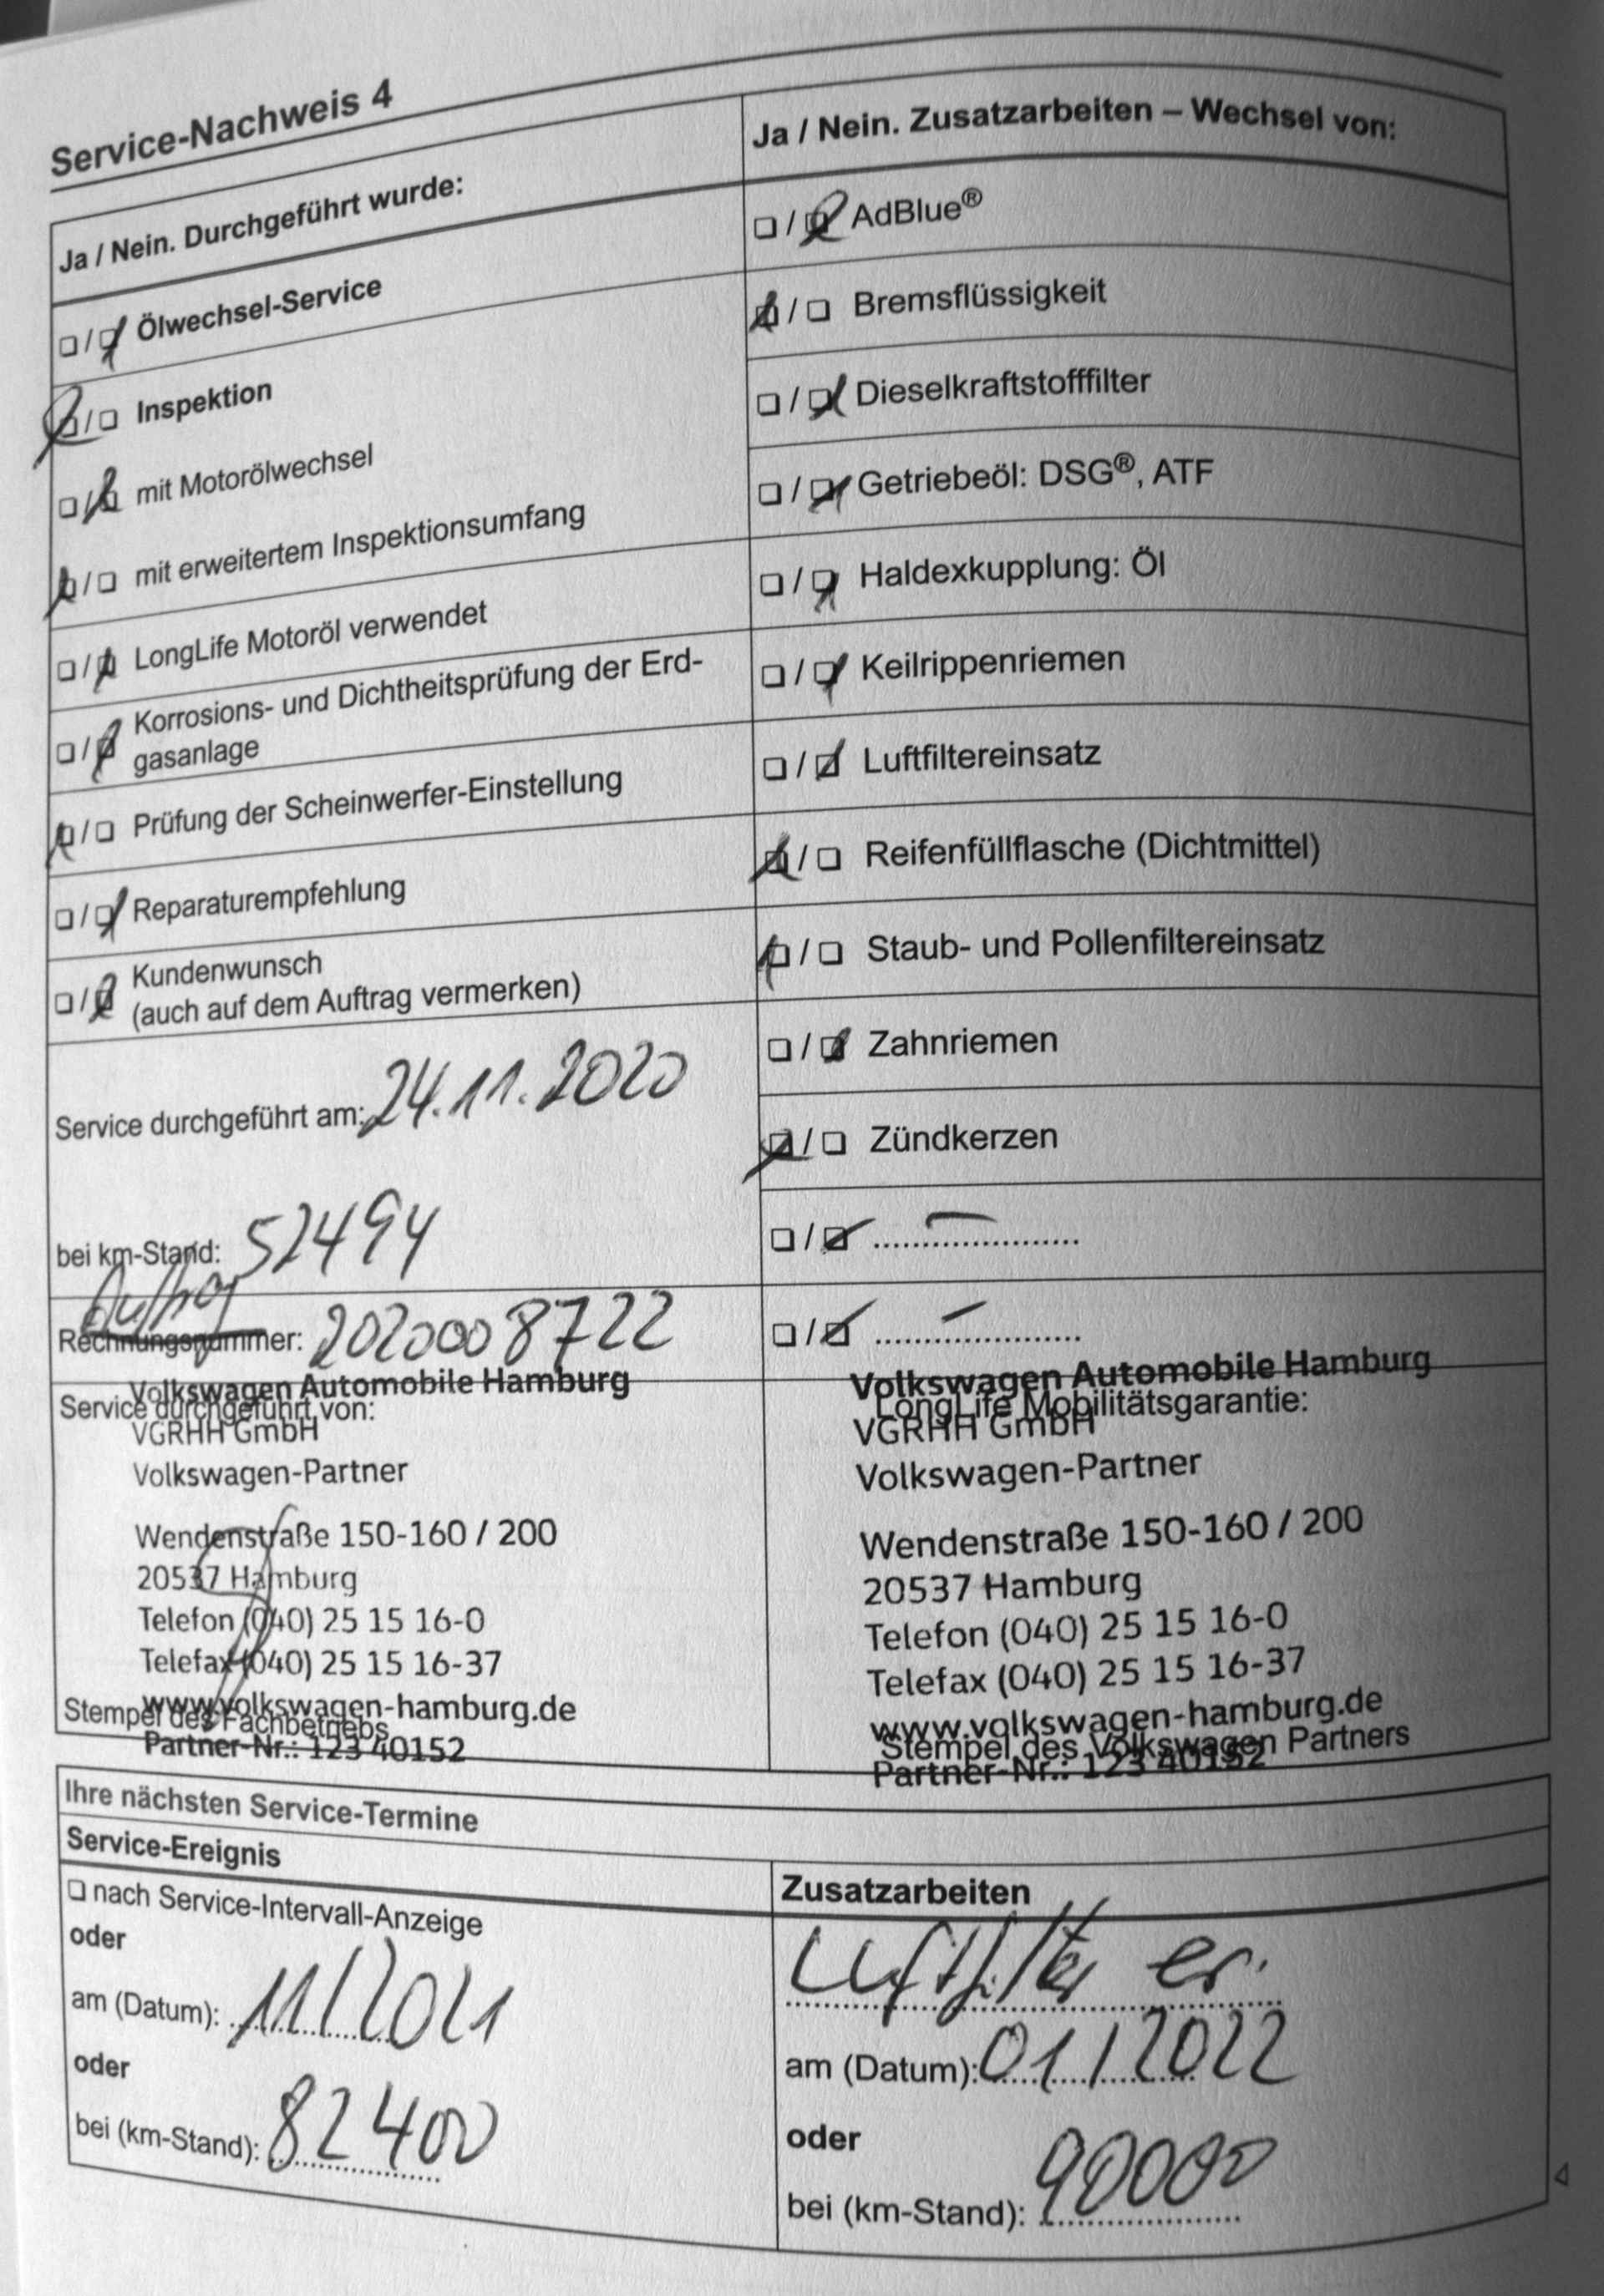 Service-Nachweis 4
Ja / Nein. Durchgeführt wurde:
Ölwechsel-Service
Inspektion
mit Motorölwechsel
mit erweitertem Inspektionsumfang
LongLife Motoröl verwendet
Korrosions- und Dichtheitsprüfung der Erd-
gasanlage
Prüfung der Scheinwerfer-Einstellung
Reparaturempfehlung
Kundenwunsch
(auch auf dem Auftrag vermerken)
Service durchgeführt am: 24.11.2020
bei km-Stand: 52494
Auftrag
Rechnungsnummer: 2020008722
Service durchgeführt von:
Volkswagen Automobile Hamburg
VGRHH GmbH
Volkswagen-Partner
Wendenstraße 150-160 / 200
20537 Hamburg
Telefon (040) 25 15 16-0
Telefax (040) 25 15 16-37
www.volkswagen-hamburg.de
Stempel des Fachbetriebs
Partner-Nr.: 123 40152
Ja / Nein. Zusatzarbeiten – Wechsel von:
AdBlue®
Bremsflüssigkeit
Dieselkraftstofffilter
Getriebeöl: DSG®, ATF
Haldexkupplung: Öl
Keilrippenriemen
Luftfiltereinsatz
Reifenfüllflasche (Dichtmittel)
Staub- und Pollenfiltereinsatz
Zahnriemen
Zündkerzen
Volkswagen Automobile Hamburg
LongLife Mobilitätsgarantie:
VGRHH GmbH
Volkswagen-Partner
Wendenstraße 150-160 / 200
20537 Hamburg
Telefon (040) 25 15 16-0
Telefax (040) 25 15 16-37
www.volkswagen-hamburg.de
Stempel des Volkswagen Partners
Partner-Nr.: 123 40152
Ihre nächsten Service-Termine
Service-Ereignis
nach Service-Intervall-Anzeige
oder
am (Datum): 11/2021
oder
bei (km-Stand): 82400
Zusatzarbeiten
Luftfilter er.
am (Datum): 01/2022
oder
bei (km-Stand): 90000